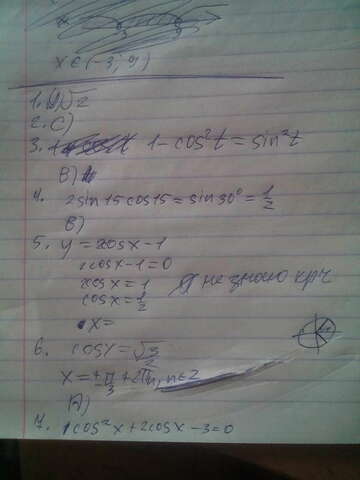 x ∈ (-3; 9)
1. D) √2
2. C)
3. 1 - cos²t = sin²t
B)
4. 2sin15cos15 = sin30° = 1/2
B)
5. y = 2cosx - 1
2cosx - 1 = 0
2cosx = 1
cosx = 1/2
x =
Я не знаю крч
6. cosx = √3/2
x = ± π/3 + 2πn, n ∈ Z
A)
7. cos²x + 2cosx - 3 = 0